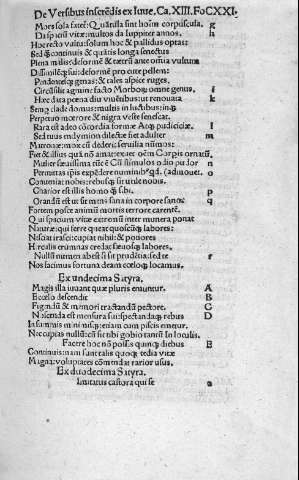 De Versibus inserēdis ex Iuue. Ca. XIII. Fo CXXI.
Mors sola fatet: Quātula sint hoīm corpuscula. g
Da spaciū vitæ: multos da Iuppiter annos. h
Hoc recto vultu: solum hoc & pallidus optas:
Sed q̃ continuis & quātis longa senectus
Plena malis: deformē & tetrū ante omīa vultum
Dissimilēq̃ sui: deformē pro cute pellem:
Pendentesq̃ genas: & tales aspice ruges.
Circūsilit agmine facto Morboq̨ omne genus, i
Hæc data pœna diu viuētibus: ut renouata k
Semp clade domus: multis in luctibus: inq̨
Perpetuo mœrore & nigra veste senescāt.
Rara est adeo cōcordia formæ Atq̨ pudicitiæ. l
Sed tuus endymion dilectæ fiet adulter m
Matronæ: mox cū dederit: seruilia nūmos:
Fiet & illius quā nō amat: exuet oēm Corpis ornatū.
Mulier sæuissima tūc ē Cū stimulos odio pudor n
Permittas ipsis expēdere numinibꝰ qd. (admouet. o
Conueniat nobis: rebusq̨ sit utile nobis.
Charior est illis homo q̃ sibi. p
Orandū est ut sit mens sana in corpore sano: q
Fortem posce animū mortis terrore carentē.
Qui spacium vitæ extremū inter munera ponat
Naturæ: qui ferre queat quoscūq̨ labores:
Nesciat irasci: cupiat nihil: & potiores
Herculis ærumnas credat sæuosq̨ labores.
Nullū numen abest si sit prudētia: sed te r
Nos facimus fortuna deam cœloq̨ locamus.
Ex undecima Satyra.
Magis illa iuuant quæ pluris emuntur. A
E cœlo descendit B
Figendū & memori tractandū pectore. C
Noscenda est mensura sui: spectandaq̨ rebus D
In summis minimisq̨: etiam cum piscis emetur.
Ne cupias nullū cū sit tibi gobio tantū in loculis.
Facere hoc nō possis quinq̨ diebus B
Continuis: nam sunt talis quoq̨ tedia vitæ
Magna: voluptates cōmendat rarior usus.
Ex duodecima Satyra.
Imitatus castora qui se a